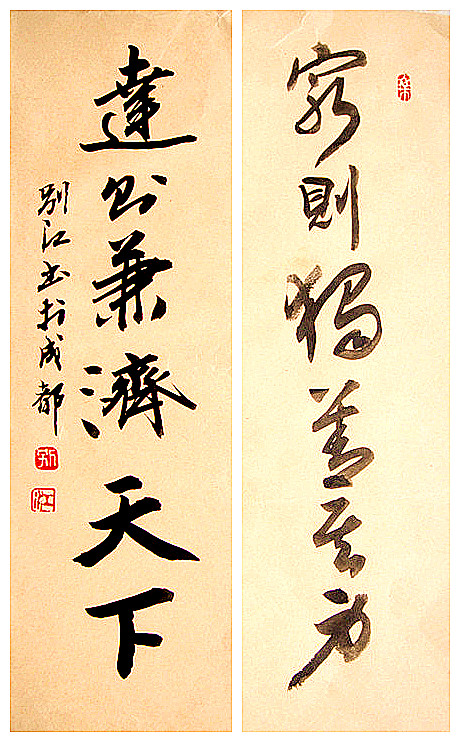 窮則獨善其身
達則兼濟天下
别江书於成都